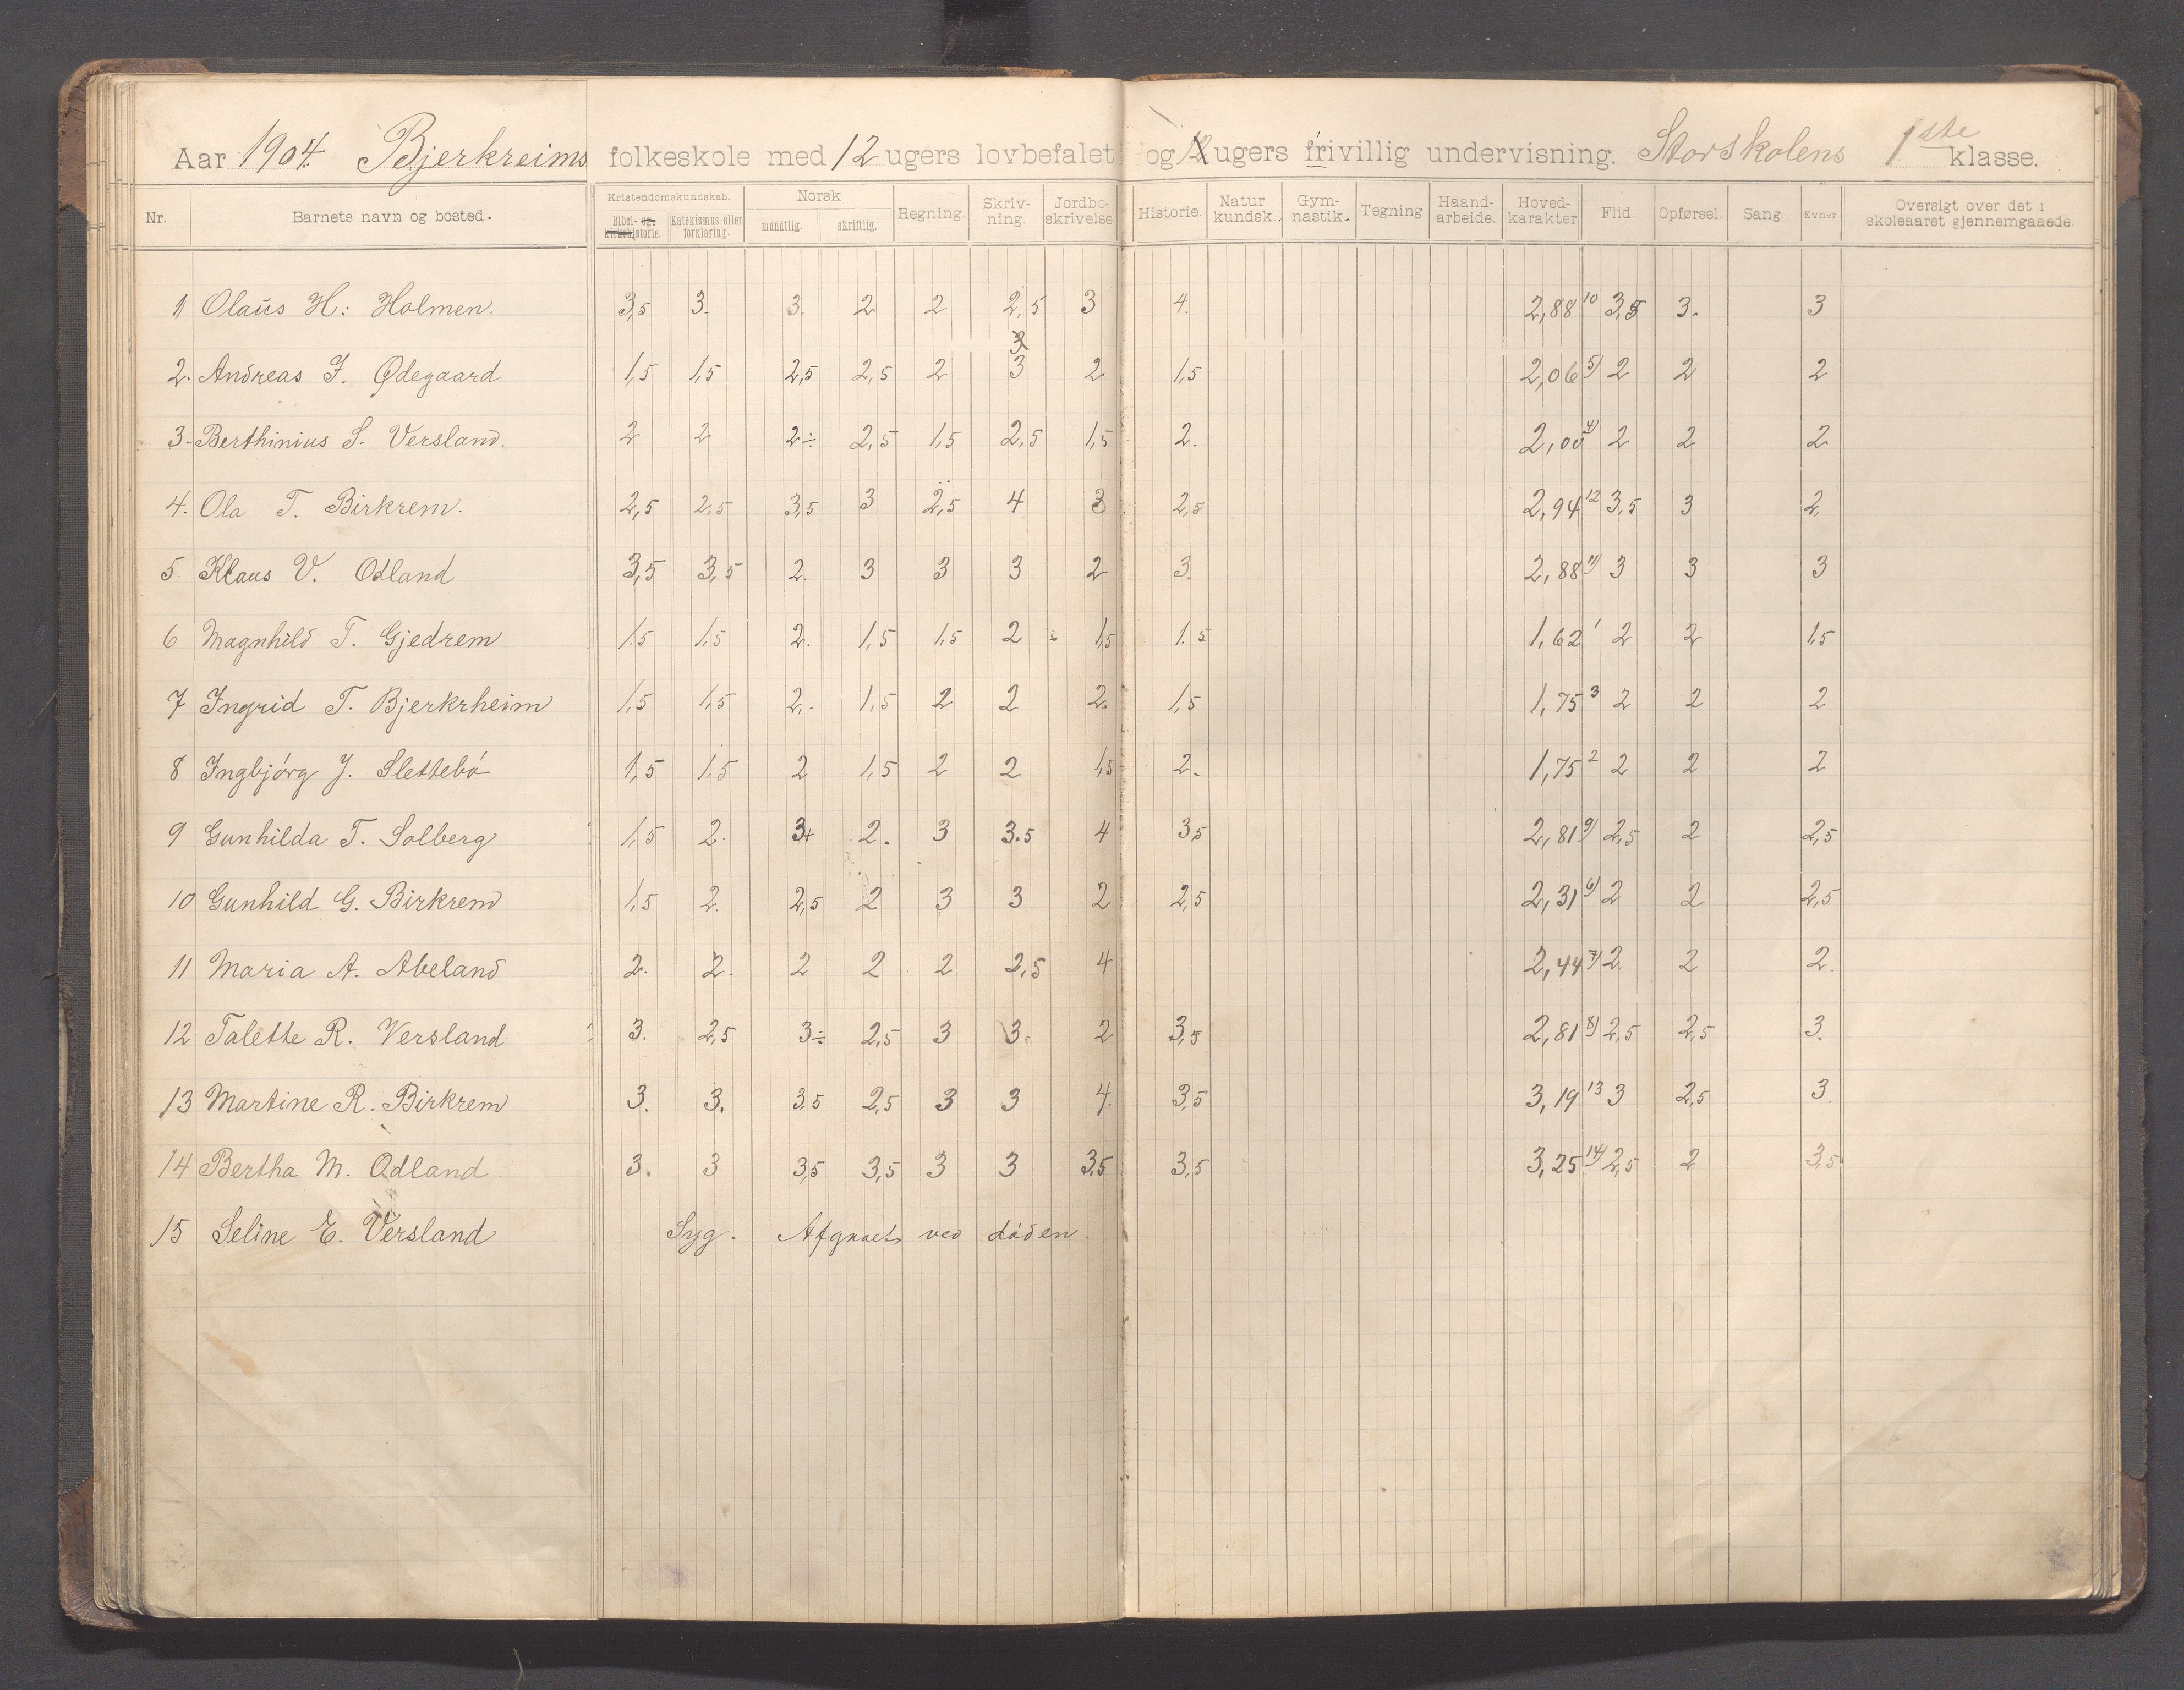 Aar 1904. Bjerkreims folkeskole med 12 ugers lovbefalet og ugers frivillig undervisning. Storskolens 1ste klasse.
Nr. Barnets navn og bosted. Kristendomskundskab. Bibel- og kirkehistorie. Katekismus eller forklaring. Norsk mundtlig. skriftlig. Regning. Skrivning. Jordbeskrivelse Historie. Naturkundsk. Gymnastik. Tegning Haandarbeide. Hovedkarakter Flid. Opførsel. Sang. Evner Oversigt over det i skoleaaret gjennemgaaede.
1 Olaus H: Holmen. 3,5 3. 3. 2 2 2,5 3 4. 2,88 10 3,5 3. 3
2. Andreas J. Ødegaard 1,5 1,5 2,5 2,5 2 3 2 1,5 2,06 5) 2 2 2
3- Berthinius S. Versland. 2 2 2÷ 2,5 1,5 2,5 1,5 2. 2,00 4) 2 2 2
4. Ola T. Birkrem. 2,5 2,5 3,5 3 2,5 4 3 2,5 2,94 12 3,5 3 2,
5. Klaus V. Odland 3,5 3,5 2. 3 3 3 2 3. 2,88 11) 3 3 3
6 Magnhild T. Gjedrem 1.5 1,5 2. 1,5 1,5 2 1,5 1.5 1,62 1 2 2 1,5
7 Ingrid T. Bjerkrheim 1,5 1,5 2. 1,5 2 2 2. 1,5 1,75 3 2 2 2
8 Ingbjórg J. Slettebó 1,5 1,5 2 1,5 2 2 1,5 2. 1,75 2 2 2 2
9 Gunhilda T. Solberg 1,5 2. 3+ 2. 3 3.5 4 3,5 2,81 9) 2,5 2 2,5
10 Gunhild G. Birkrem 1,5 2. 2,5 2 3 3 2 2,5 2,31 6) 2 2 2,5
11 Maria A. Abeland 2. 2. 2 2 2 2,5 4 2,44 7) 2. 2 2.
12 Talette R. Versland 3. 2,5 3÷ 2,5 3 3. 2 3,5 2,81 8) 2,5 2,5 3.
13 Martine R. Birkrem 3. 3. 3,5 2,5 3 3 4. 3,5 3,19 13 3 2,5 3.
14 Bertha M. Odland 3. 3 3,5 3,5 3 3 3,5 3,5 3,25 14) 2,5 2 3,5
15 Seline E. Versland Syg. Afgaaet ved dóden.